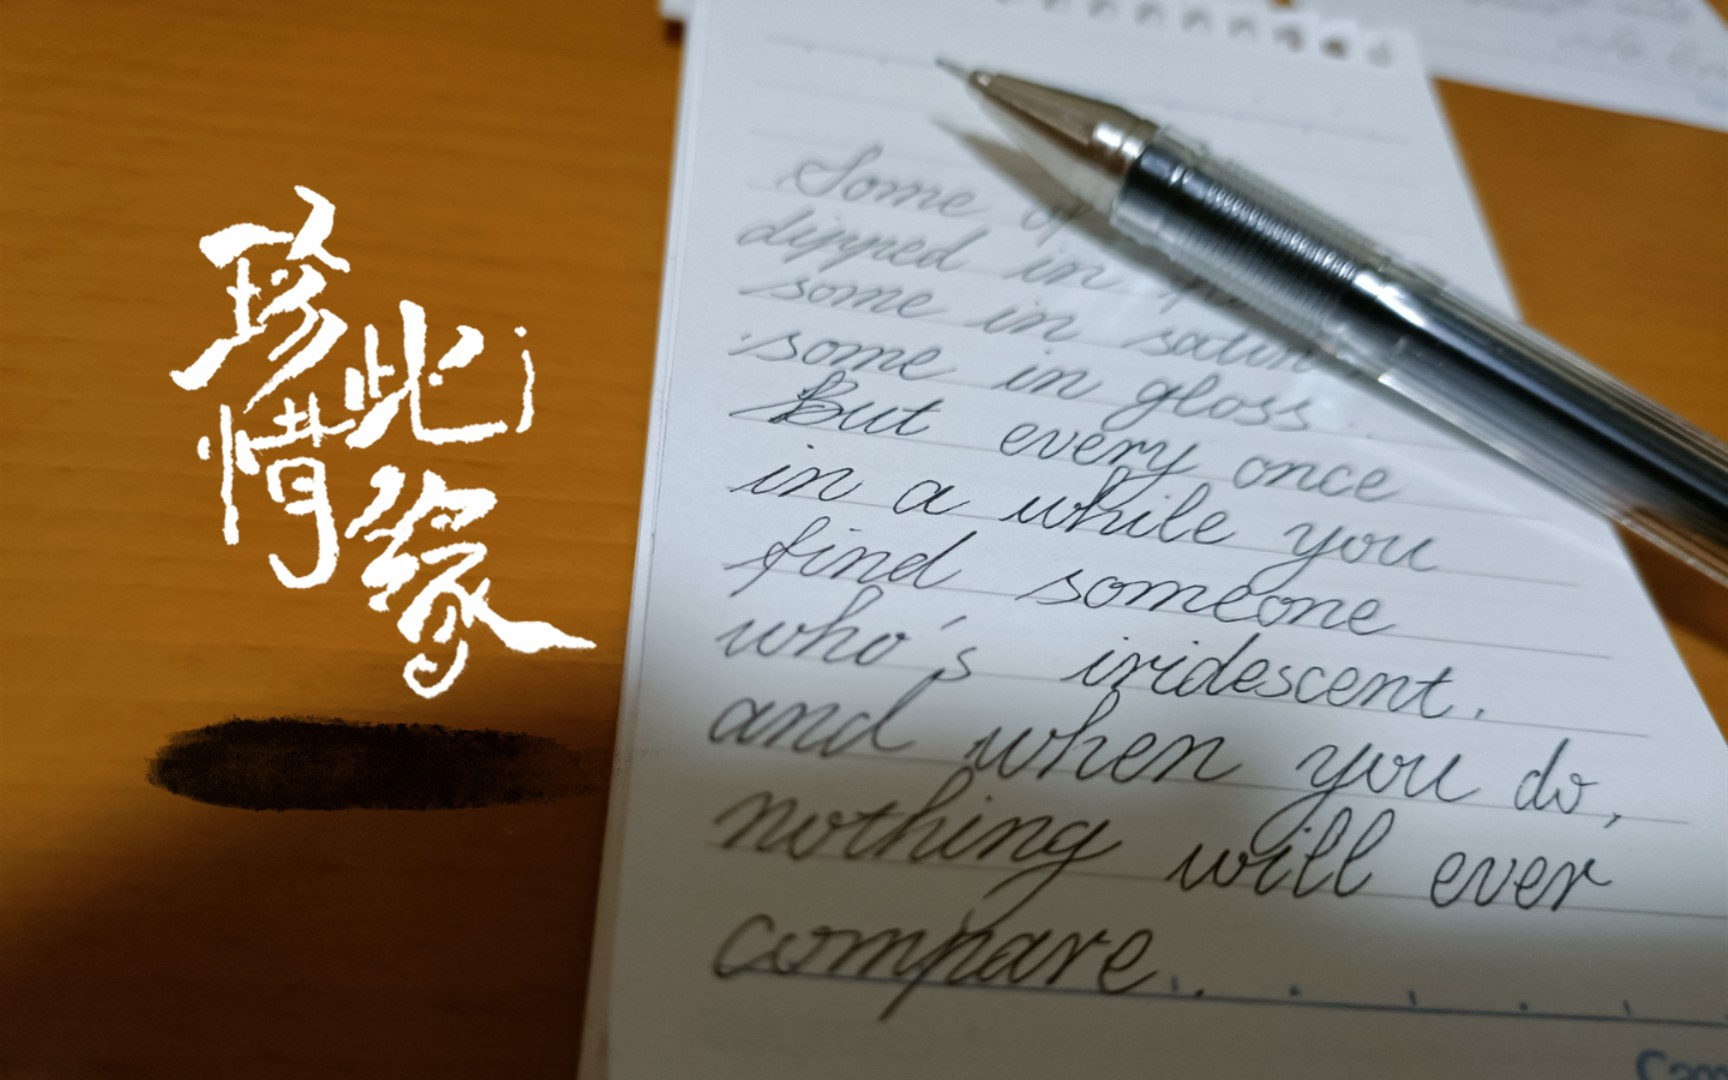 珍此
情缘
Some
dipped in
some in satin
some in gloss.
But every once
in a while you
find someone
who's iridescent.
and when you do,
nothing will ever
compare.